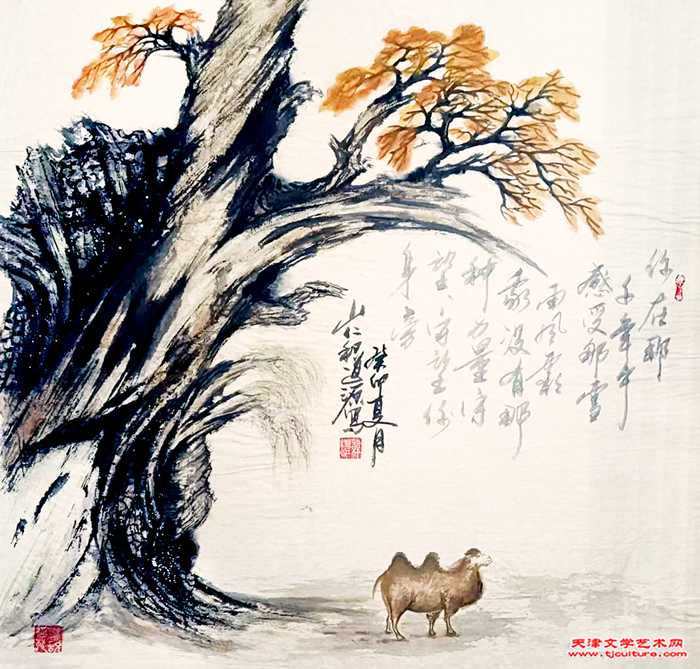 你在那
千年
感受那雪
雨风
没有那
种力量
望、守望你
身旁
癸卯夏月
山仁初道写
天津文学艺术网
www.tjculture.com